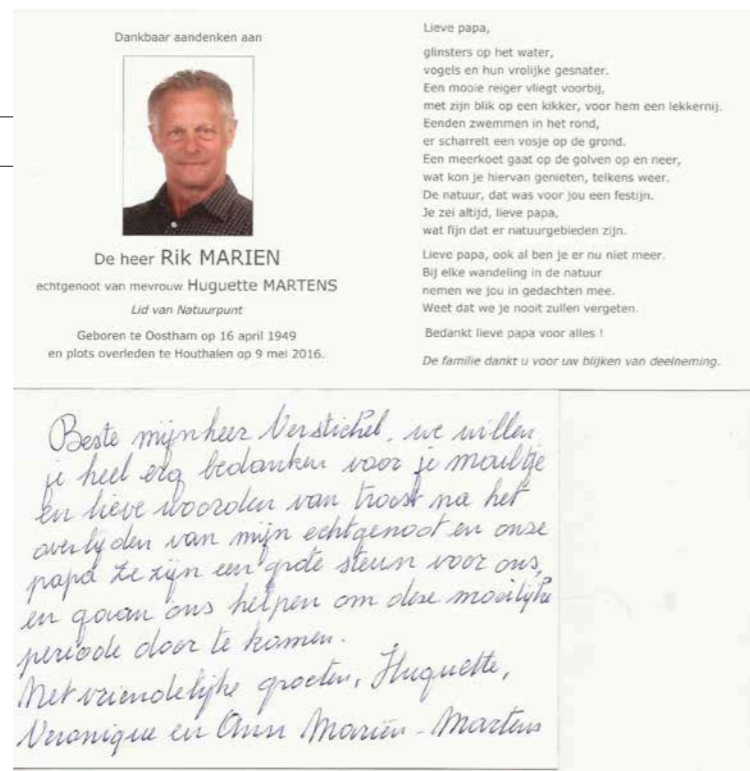 Dankbaar aandenken aan
De heer Rik MARIEN
echtgenoot van mevrouw Huguette MARTENS
Lid van Natuurpunt
Geboren te Oostham op 16 april 1949
en plots overleden te Houthalen op 9 mei 2016.
Lieve papa,
glinsters op het water,
vogels en hun vrolijke gesnater.
Een mooie reiger vliegt voorbij,
met zijn blik op een kikker, voor hem een lekkernij.
Eenden zwemmen in het rond,
er scharrelt een vosje op de grond.
Een meerkoet gaat op de golven op en neer,
wat kon je hiervan genieten, telkens weer.
De natuur, dat was voor jou een festijn.
Je zei altijd, lieve papa,
wat fijn dat er natuurgebieden zijn.
Lieve papa, ook al ben je er nu niet meer.
Bij elke wandeling in de natuur
nemen we jou in gedachten mee.
Weet dat we je nooit zullen vergeten.
Bedankt lieve papa voor alles !
De familie dankt u voor uw blijken van deelneming.
Beste mijnheer Verstichel, we willen
je heel erg bedanken voor je mailtje
en lieve woorden van troost na het
overlijden van mijn echtgenoot en onze
papa. Ze zijn een grote steun voor ons,
en gaan ons helpen om deze moeilijke
periode door te komen.
Met vriendelijke groeten, Huguette,
Veronique en Ann Mariën - Martens